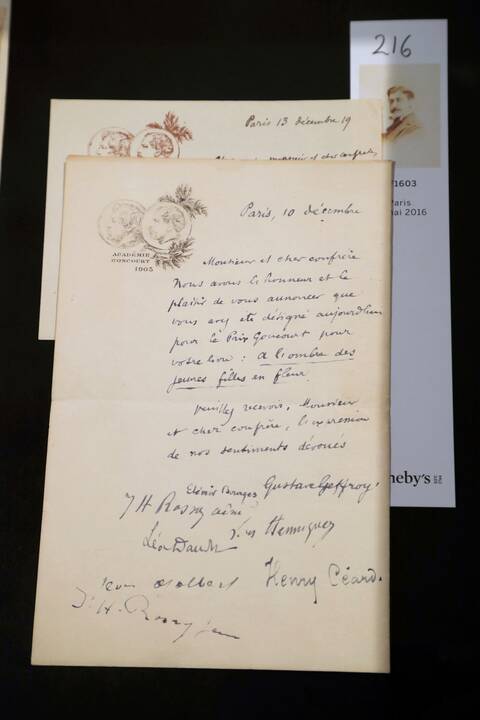 216
1603
Paris
mai 2016
heby's
Paris 13 décembre 19
monsieur et cher confrère,
Paris, 10 décembre
ACADÉMIE
GONCOURT
1903
Monsieur et cher confrère
Nous avons l'honneur et le
plaisir de vous annoncer que
vous avez été désigné aujourd'hui
pour le Prix Goncourt pour
votre livre : A l'ombre des
jeunes filles en fleur.
Veuillez recevoir, Monsieur
et cher confrère, l'expression
de nos sentiments dévoués
Elémir Bourges Gustave Geffroy
J H Rosny aîné
Léon Daudet Hennique
Henry Céard.
J. H. Rosny jeune